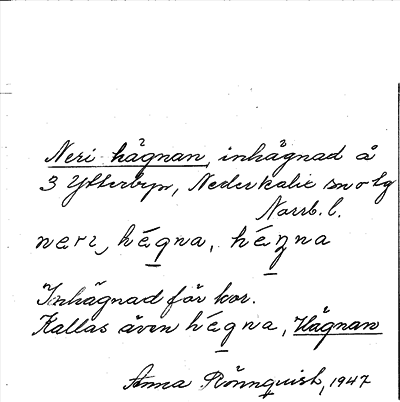 Neri hägnan, inhägnad å
3 Ytterbyn, Nederkalix sn o tg
Norrb. l.
neri, hégna, héŋna
Inhägnad för kor.
Kallas även hégna, Hägnan
Anna Rönnquist, 1947